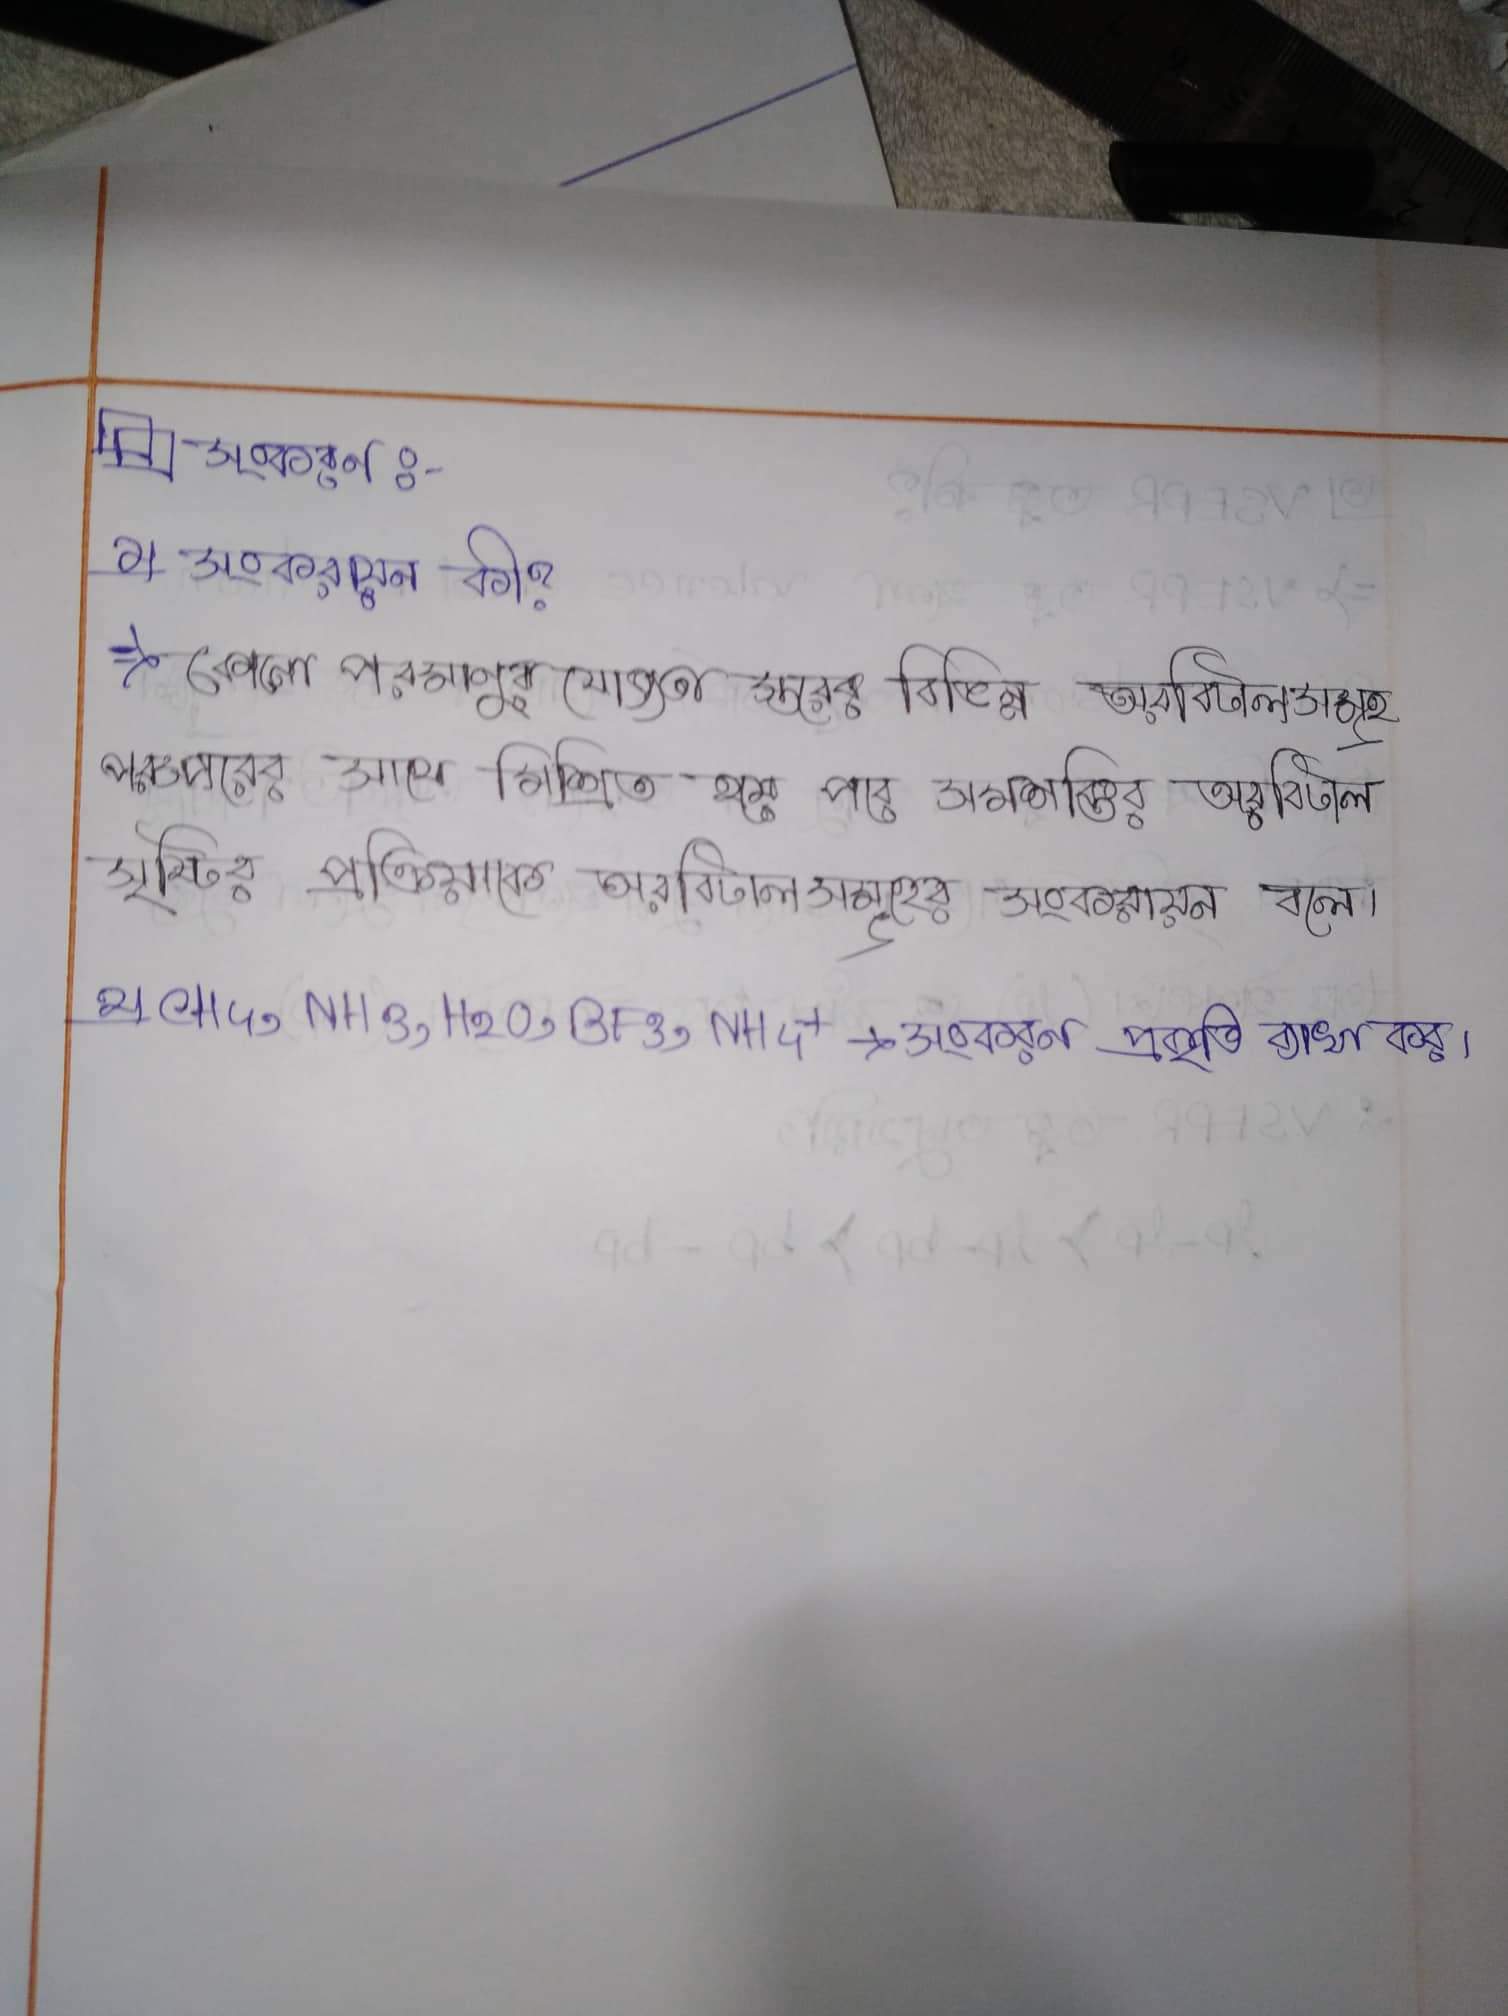 সংকরন ঃ-
১। সংকরায়ন কী?
⇒ কোনো পরমাণুর যোজ্যতা স্তরের বিভিন্ন অরবিটালসমূহ
পরস্পরের সাথে মিশ্রিত হয়ে পরে সমশক্তির অরবিটাল
সৃষ্টির প্রক্রিয়াকে অরবিটালসমূহের সংকরায়ন বলে।
২। CH4, NH3, H2O, BF3, NH4+ → সংকরন প্রকৃতি ব্যাখ্যা কর।